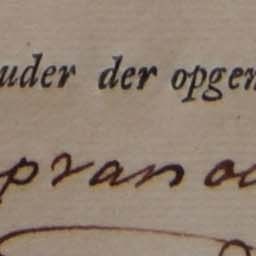 uder der opgen
pranoe